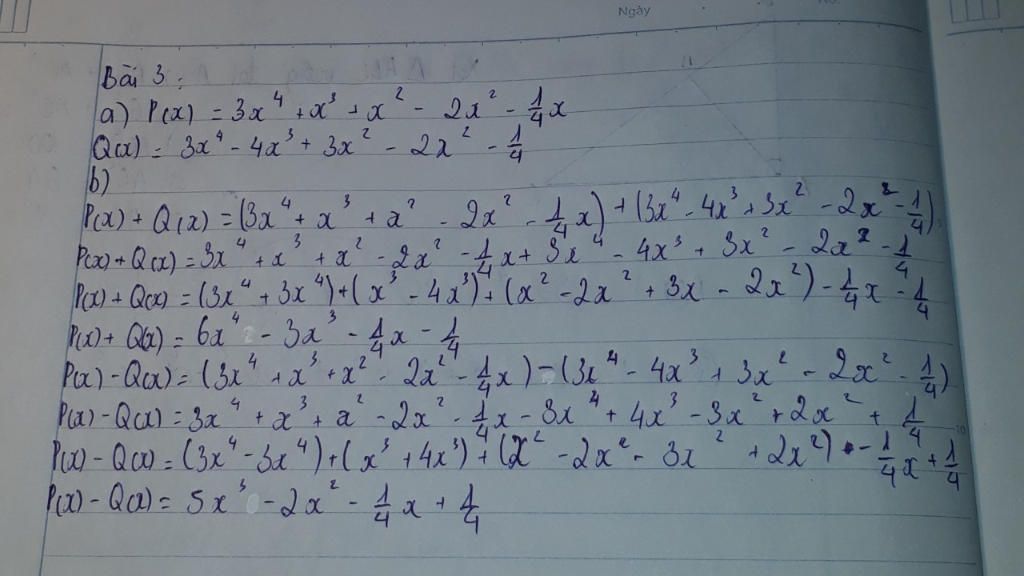 Ngày
Bài 3:
a) P(x) = 3x⁴ + x³ + x² - 2x² - 1/4x
Q(x) = 3x⁴ - 4x³ + 3x² - 2x² - 1/4
b)
P(x) + Q(x) = (3x⁴ + x³ + x² - 2x² - 1/4x) + (3x⁴ - 4x³ + 3x² - 2x² - 1/4)
P(x) + Q(x) = 3x⁴ + x³ + x² - 2x² - 1/4x + 3x⁴ - 4x³ + 3x² - 2x² - 1/4
P(x) + Q(x) = (3x⁴ + 3x⁴) + (x³ - 4x³) + (x² - 2x² + 3x - 2x²) - 1/4x - 1/4
P(x) + Q(x) = 6x⁴ - 3x³ - 1/4x - 1/4
P(x) - Q(x) = (3x⁴ + x³ + x² - 2x² - 1/4x) - (3x⁴ - 4x³ + 3x² - 2x² - 1/4)
P(x) - Q(x) = 3x⁴ + x³ + x² - 2x² - 1/4x - 3x⁴ + 4x³ - 3x² + 2x² + 1/4
P(x) - Q(x) = (3x⁴ - 3x⁴) + (x³ + 4x³) + (x² - 2x² - 3x² + 2x²) - 1/4x + 1/4
P(x) - Q(x) = 5x³ - 2x² - 1/4x + 1/4